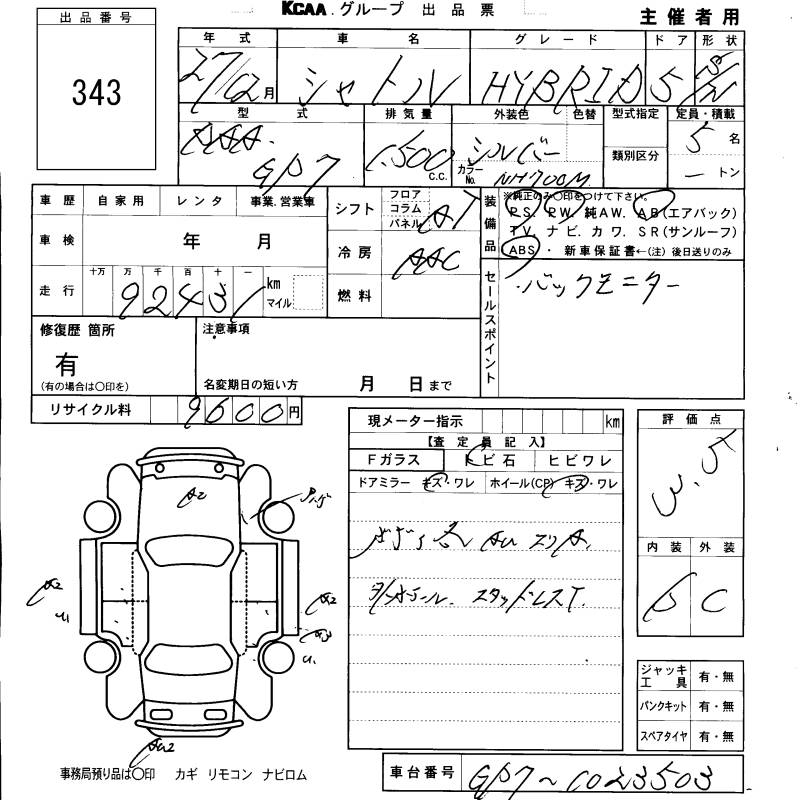 KCAA.グループ 出品票
主催者用
出品番号
343
年式 車名 グレード ドア 形状
27/12月 シャトル HYBRID 5 S/W
型式 排気量 外装色 色替 型式指定 定員・積載
DAA. GP7
1,500 C.C.
シルバー
カラーNo. NH700M
類別区分
5 名
ー トン
車歴 自家用 レンタ 事業.営業車
シフト フロア コラム パネル AT
装備品
※純正のみ〇印をつけて下さい。
P.S. P.W. 純A.W. A.B(エアバック)
T.V. ナビ. カワ. S.R(サンルーフ)
ABS ・ 新車保証書←(注) 後日送りのみ
車検 年 月
冷房 AAC
走行 十万 万 千 百 十 一 km マイル
92431
燃料
セールスポイント
・バックモニター
修復歴 箇所
有
(有の場合は〇印を)
注意事項
名変期日の短い方 月 日まで
リサイクル料 9600円
現メーター指示 km
【査定員記入】
Fガラス トビ石 ヒビワレ
ドアミラー キズ・ワレ ホイール(CP) キズ・ワレ
スタッドレスT.
評価点
3.5
内装 外装
B C
A2
A2
U1
A2
U1
ジャッキ工具 有・無
パンクキット 有・無
スペアタイヤ 有・無
事務局預り品は〇印 カギ リモコン ナビロム
車台番号 GP7〜1023503